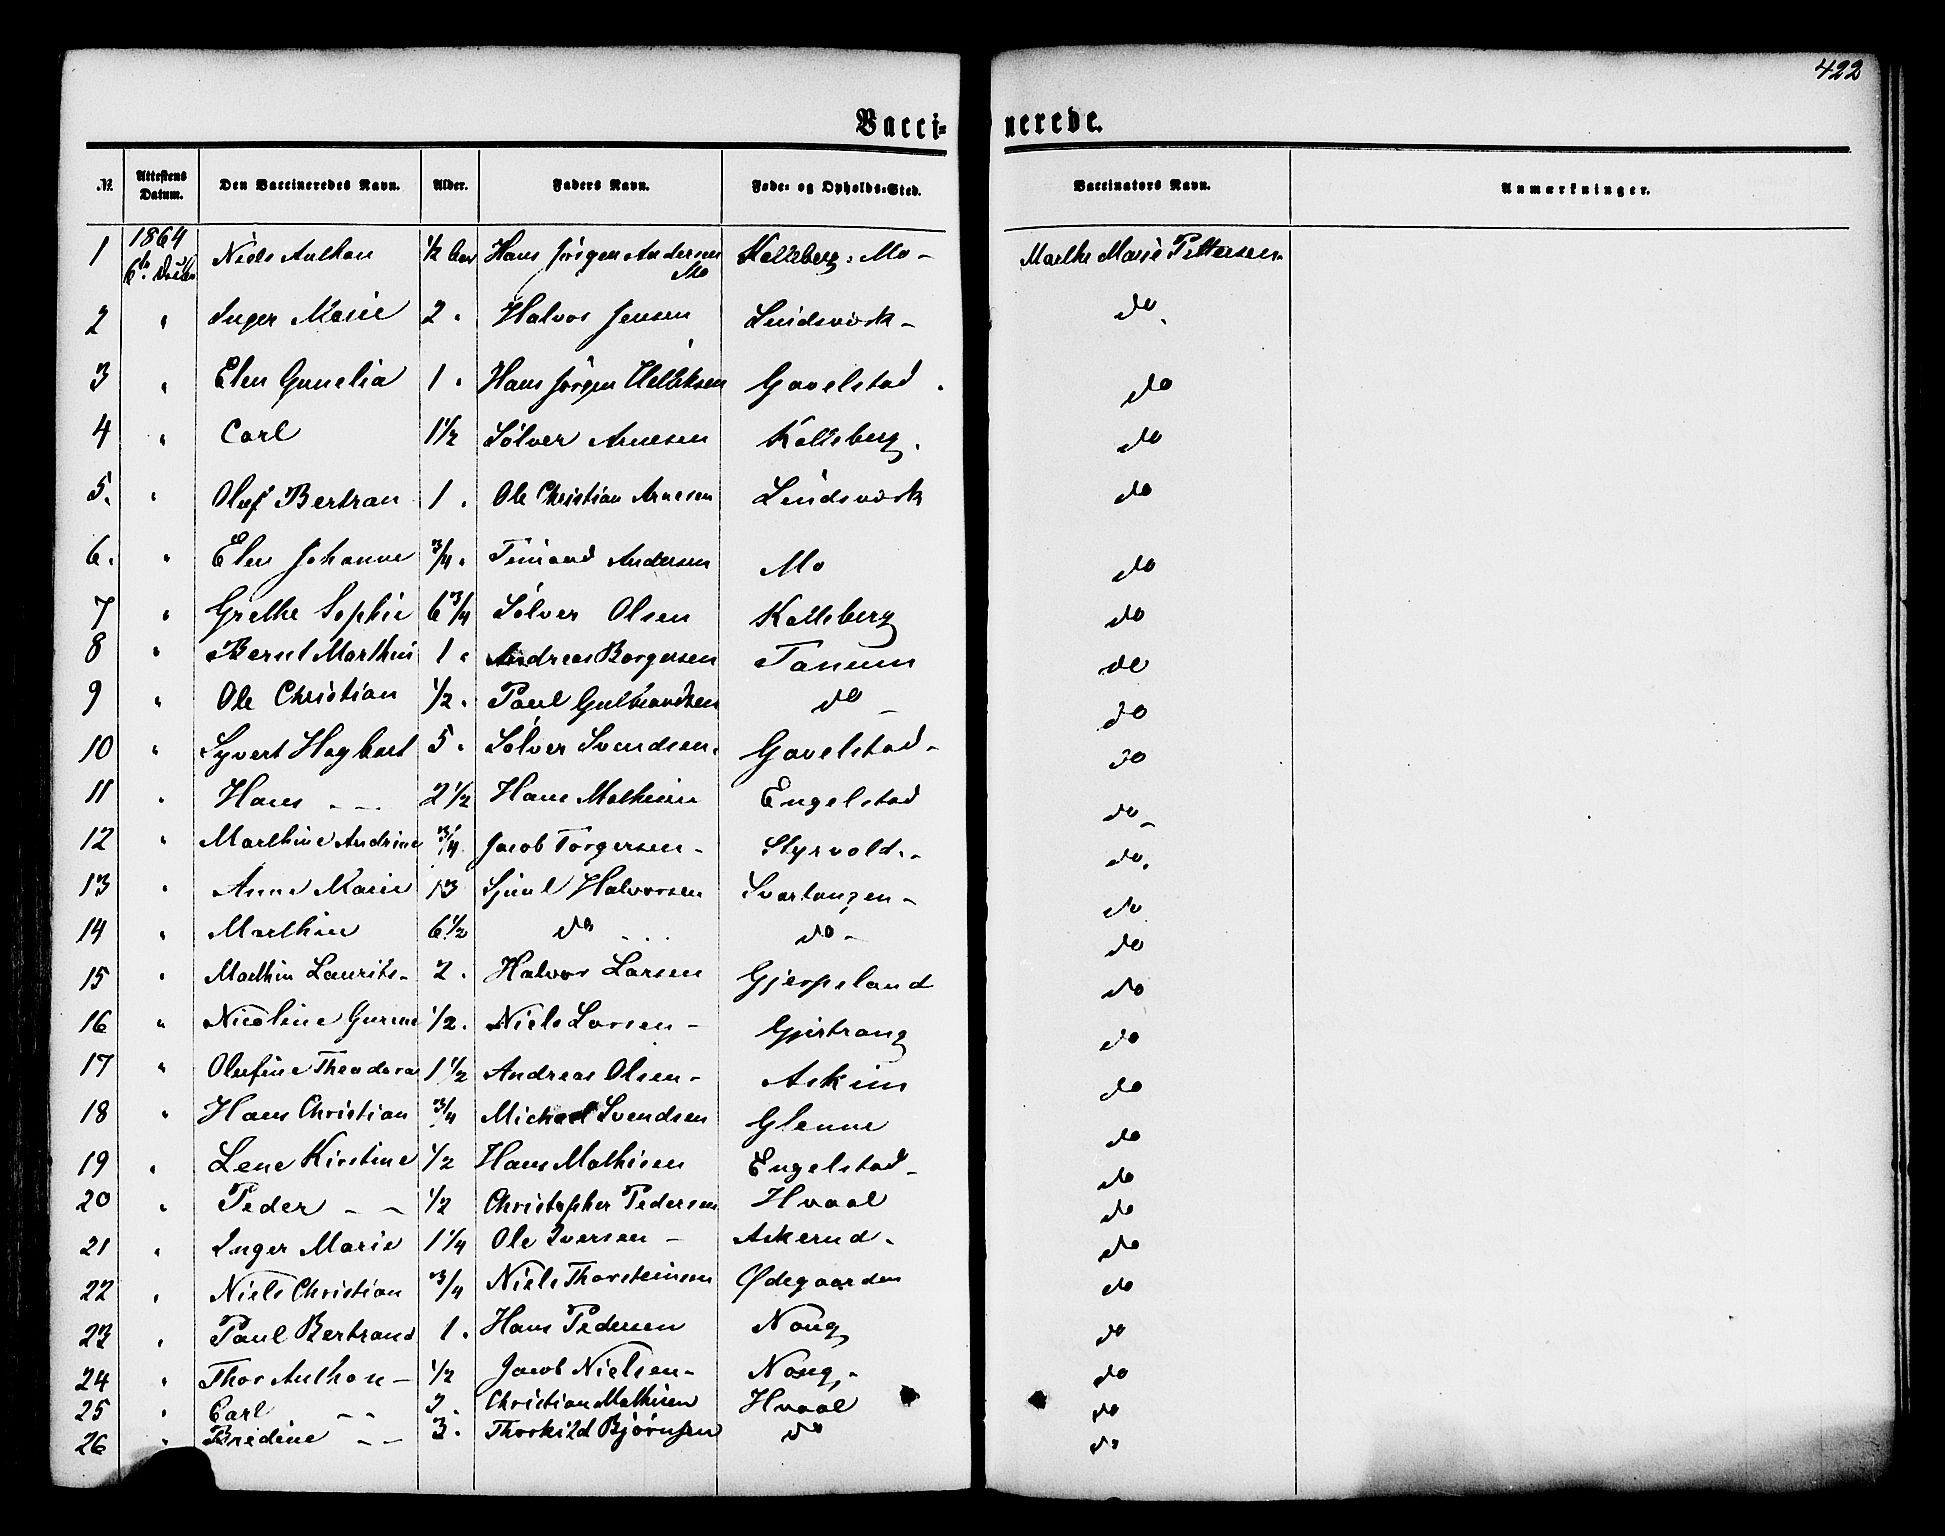 422
Vacci- nerede.
№ Attestens Datum. Den Vaccineredes Navn. Alder. Faders Navn. Føde- og Opholds-Sted. Vaccinators Navn. Anmærkninger.
1864
1 6te Niels Anthon 1/2 Aar Hans Jørgen Andersen Kolkberg: Mo - Marthe Marie Pettersen
Mo
2 " Inger Marie 2 . Halvor Jensen Lindsverk - do
3 " Elen Gunelia 1 . Hans Jørgen Gavelstad . do
4 " Carl 1 1/2 Sølver Arnesen Kolleberg . do
5. " Oluf Bertran 1 . Ole Christian Arnesen Lindsverk do
6. " Elen Johanne 3/4 . Andersen Mo do
7 " Grethe Sophie 6 3/4 Sølver Olsen Kolleberg do
8 " Bernt Marthin 1 . Andreas Borgersen Tanum do
9 " Ole Christian 1/2 . Paul Gulbrandsen do - do
10 " Syvert Hagbart 5 . Sølver Svendsen . Gavelstad - do
11 " Hans - - 2 1/2 Hans Mathisen Engelstad do -
12 " Marthine Andrine 3/4 Jacob Torgersen - Styrvold . - do .
13 " Anne Marie 13 Halvorsen Svartangen - do
14 " Marthin 6 1/2 do do - do
15 " Marthin Laurits - 2 . Halvor Larsen Gjerpeland do
16 " Nicoline Gurine 1/2 . Niels Larsen - Gjertrang do
17 " Olufine Theodora 1 1/2 Andreas Olsen - Askim do
18 " Hans Christian 3/4 Michael Svendsen Glenne do
19 " Lene Kirstine 1/2 Hans Mathisen Engelstad - do
20 " Peder - - 1/2 Christopher Pedersen Hvaal do
21 " Inger Marie 1 1/4 Ole Iversen - Askerud - do
22 " Niels Christian 3/4 Niels Thorsteinsen Ødegaarden do
23 " Paul Bertrand 1 . Hans Pedersen Noug do
24 " Thor Anthon - 1/2 Jacob Nielsen - Noug, - do
25 " Carl - - 2 . Christian Mathisen Hvaal do
26 " Bredine - - 3 . Thorkild Bjørnsen do do